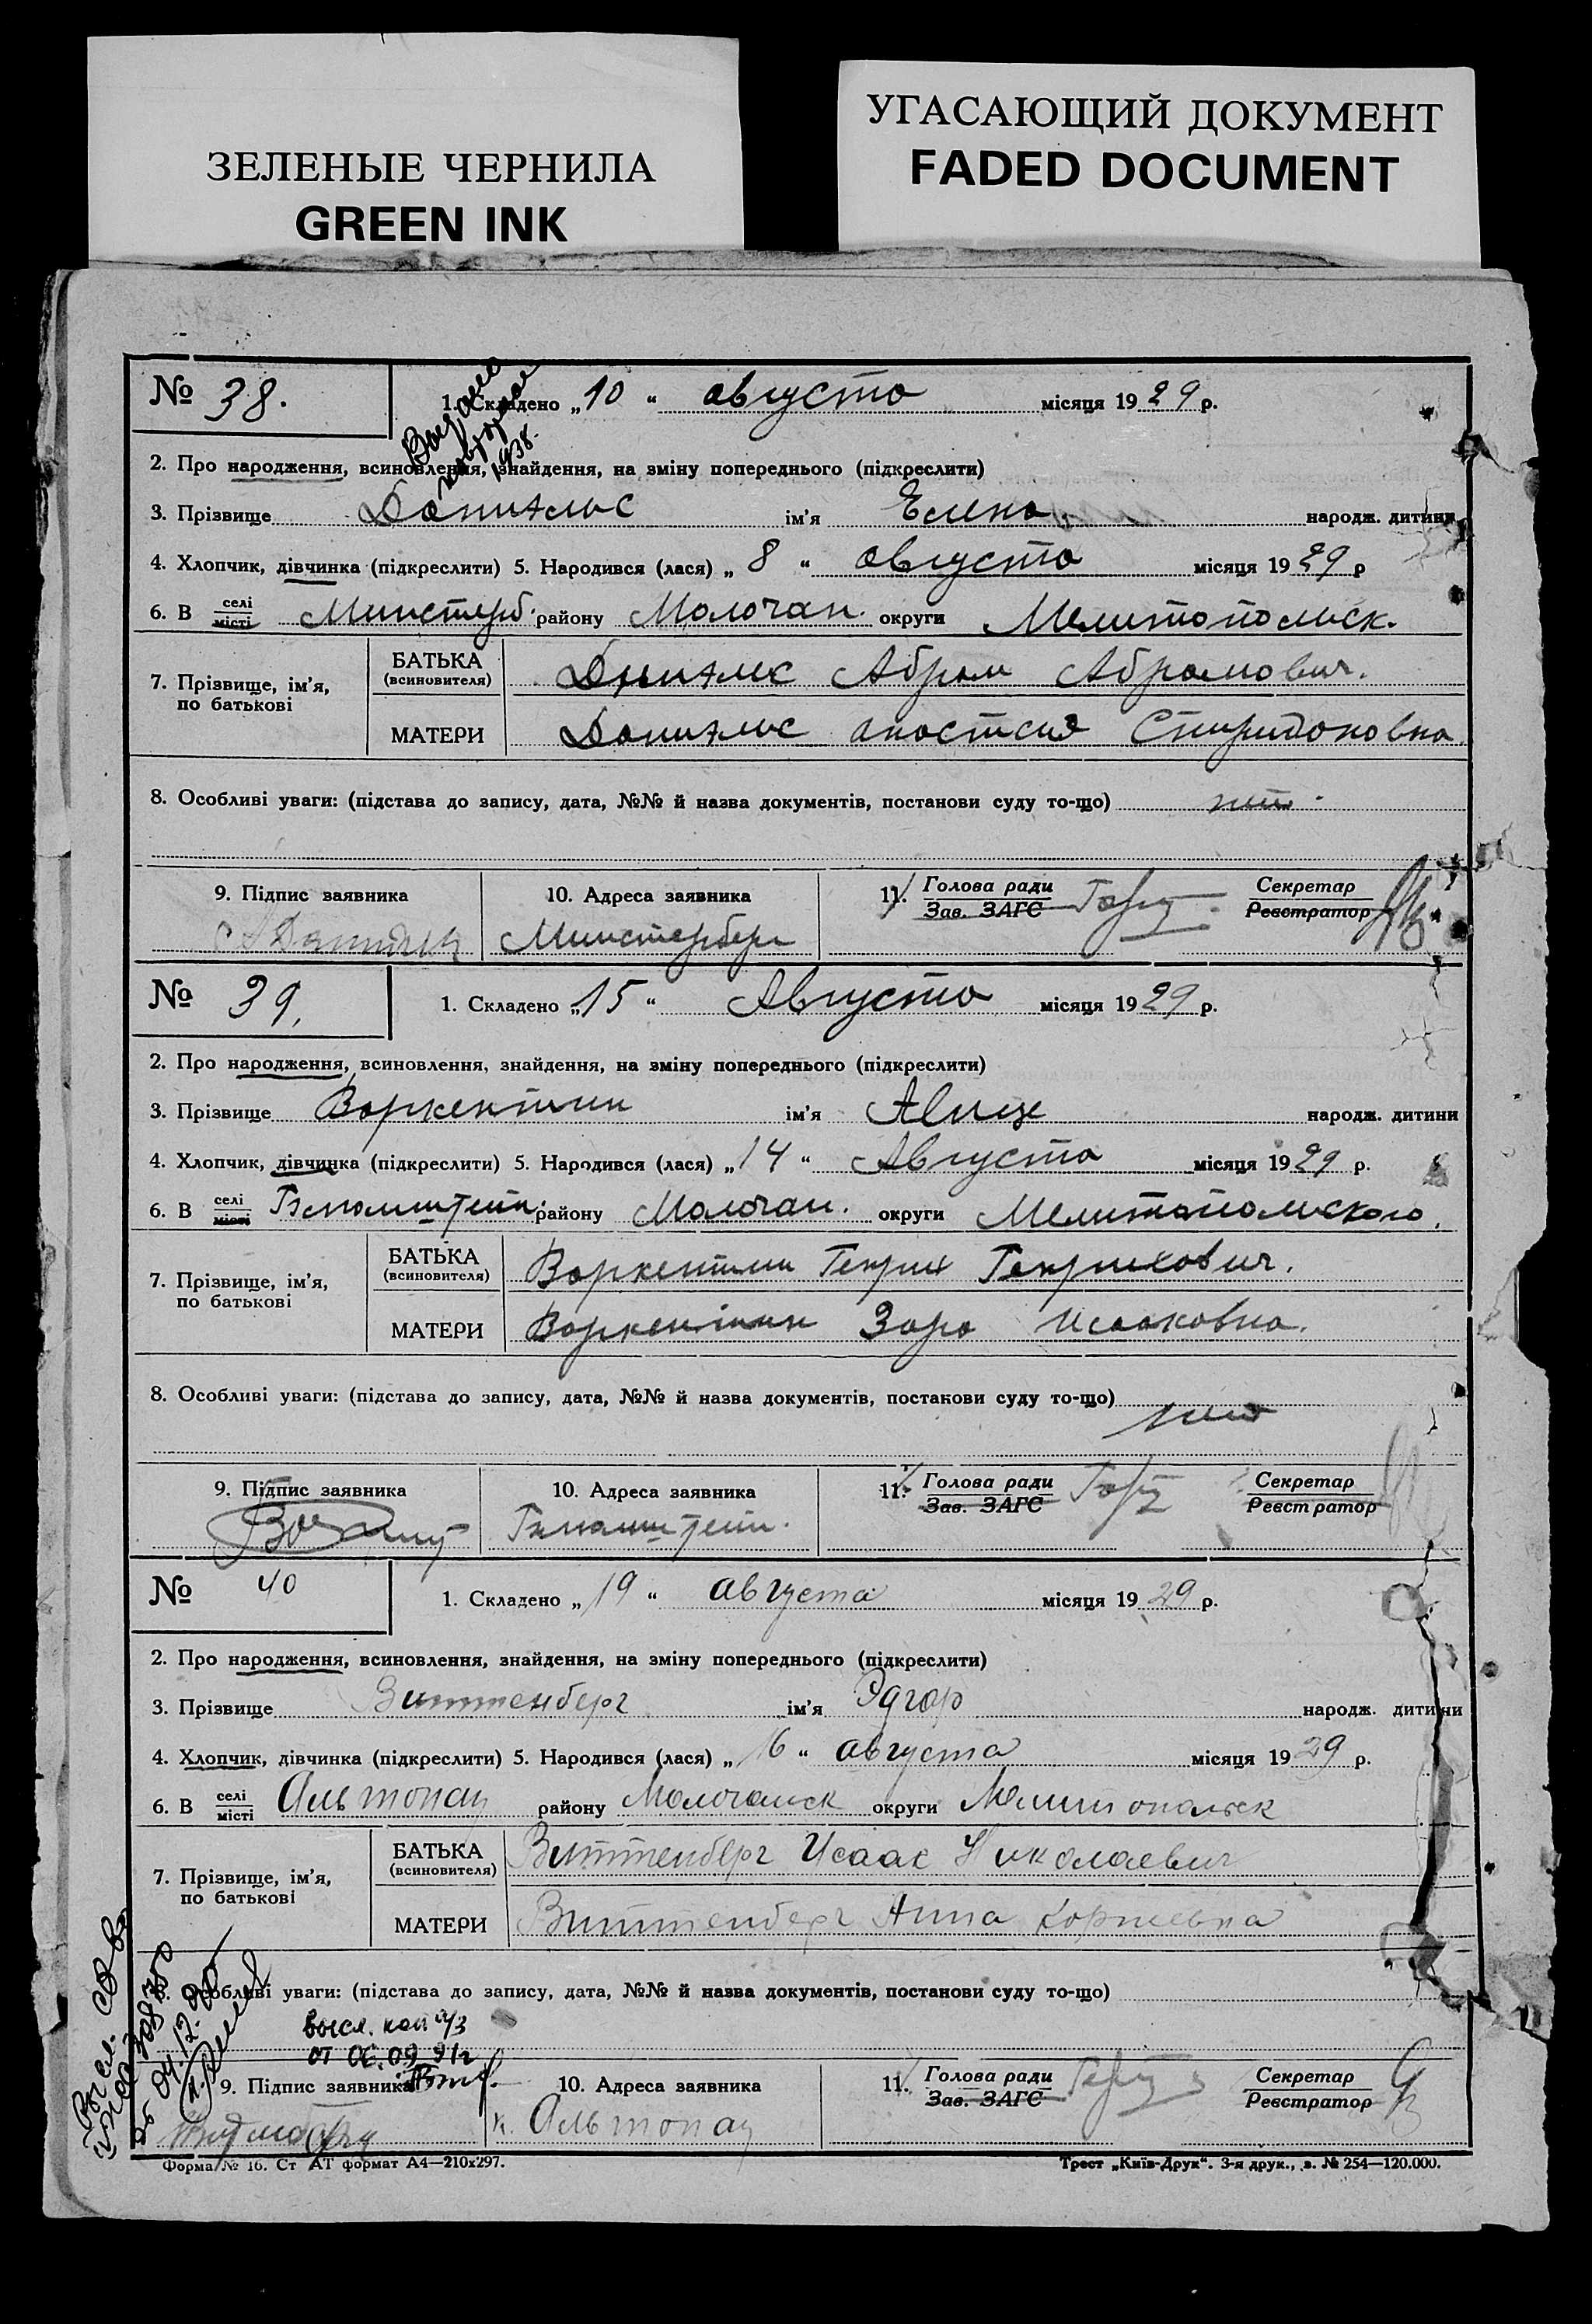 ЗЕЛЕНЫЕ ЧЕРНИЛА
GREEN INK
УГАСАЮЩИЙ ДОКУМЕНТ
FADED DOCUMENT
№ 38.
1. Складено „10“ августа місяця 1929 р.
1938.
2. Про народження, всиновлення, знайдення, на зміну попереднього (підкреслити)
3. Прізвище Даниэльс ім'я Елена народж. дитини
4. Хлопчик, дівчинка (підкреслити) 5. Народився (лася) „8“ августа місяця 1929 р
6. В селі місті Минстерб. району Молочан. округи Мелитопольск.
7. Прізвище, ім'я, по батькові
БАТЬКА (всиновителя) Даниэлс Абрам Абрамович.
МАТЕРИ Даниэльс Спиридоновна
8. Особливі уваги: (підстава до запису, дата, №№ й назва документів, постанови суду то-що) нет.
9. Підпис заявника
10. Адреса заявника Минстерберг
11. Голова ради Зав. ЗАГС
Секретар Реєстратор
№ 39.
1. Складено „15“ Августа місяця 1929 р.
2. Про народження, всиновлення, знайдення, на зміну попереднього (підкреслити)
3. Прізвище Варкентин ім'я народж. дитини
4. Хлопчик, дівчинка (підкреслити) 5. Народився (лася) „14“ Августа місяця 1929 р.
6. В селі місті району Молочан. округи Мелитопольского.
7. Прізвище, ім'я, по батькові
БАТЬКА (всиновителя) Варкентин Генрих Генрихович.
МАТЕРИ Варкентин Зара Исааковна.
8. Особливі уваги: (підстава до запису, дата, №№ й назва документів, постанови суду то-що) нет
9. Підпис заявника
10. Адреса заявника
11. Голова ради Зав. ЗАГС
Секретар Реєстратор
№ 40
1. Складено „19“ августа місяця 1929 р.
2. Про народження, всиновлення, знайдення, на зміну попереднього (підкреслити)
3. Прізвище Виттенберг ім'я Эдгар народж. дитини
4. Хлопчик, дівчинка (підкреслити) 5. Народився (лася) „16“ августа місяця 1929 р.
6. В селі місті Альтонау району Молочанск округи Мелитопольск
7. Прізвище, ім'я, по батькові
БАТЬКА (всиновителя) Виттенберг Исаак Николаевич
МАТЕРИ Виттенберг Анна Корнеевна
8. Особливі уваги: (підстава до запису, дата, №№ й назва документів, постанови суду то-що)
высл. коп а/з
от 06.09.91г
9. Підпис заявника
10. Адреса заявника к. Альтонау
11. Голова ради Зав. ЗАГС
Секретар Реєстратор
Форма № 16. Ст АТ формат А4—210х297.
Трест „Київ-Друк“. 3-я друк., з. № 254—120.000.